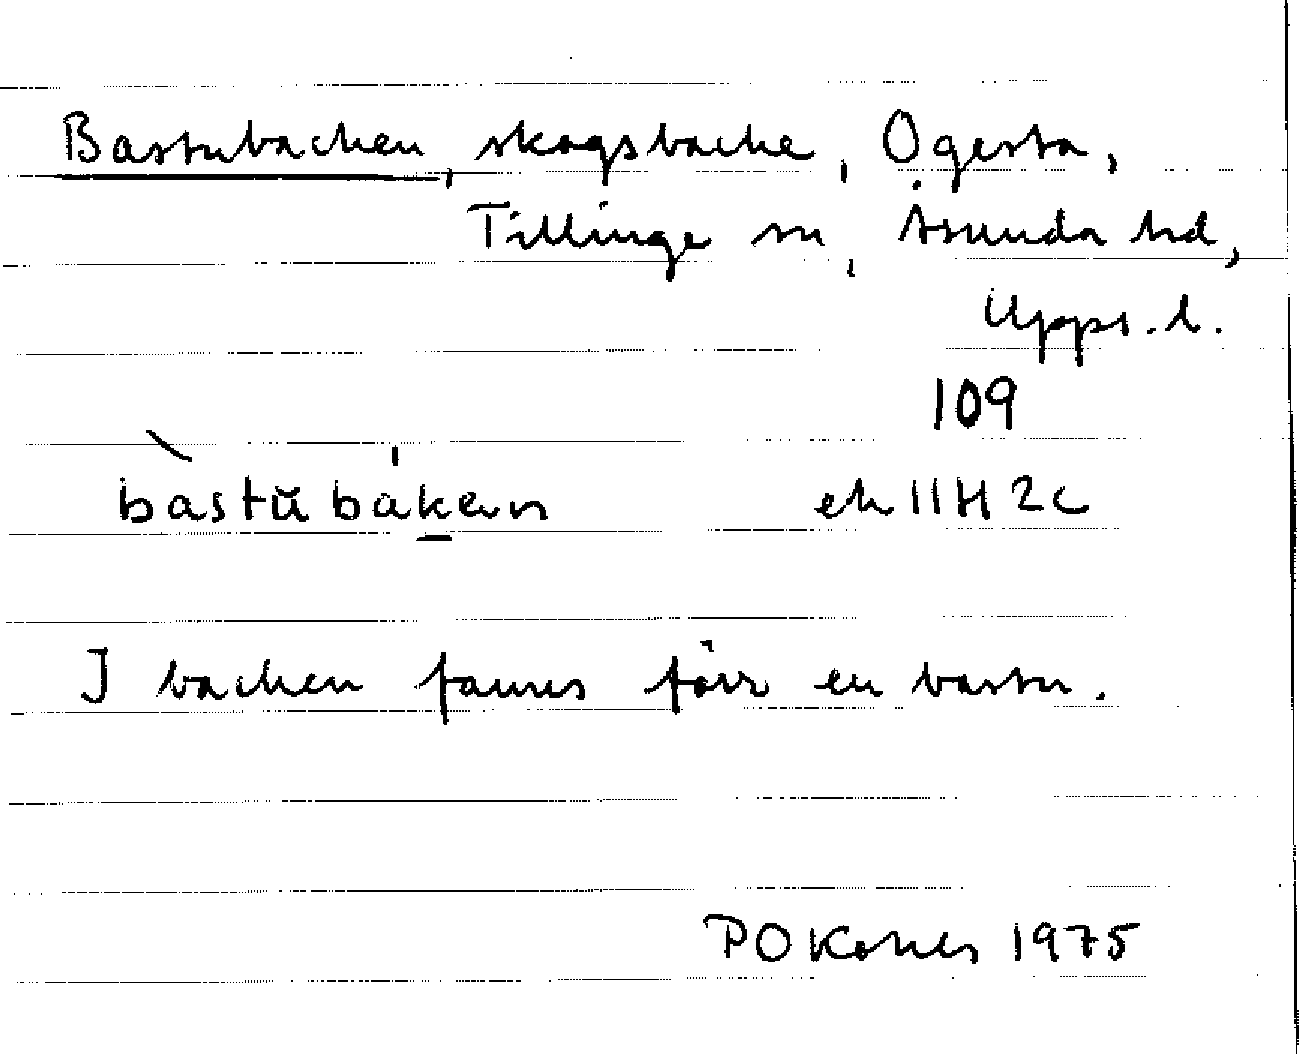 Bastubacken, skogsbacke, Ögesta,
Tillinge sn, Åsunda hd,
Upps. l.
109
bàstŭbákan ek 11H2c
I backen fanns förr en bastu.
P O 1975